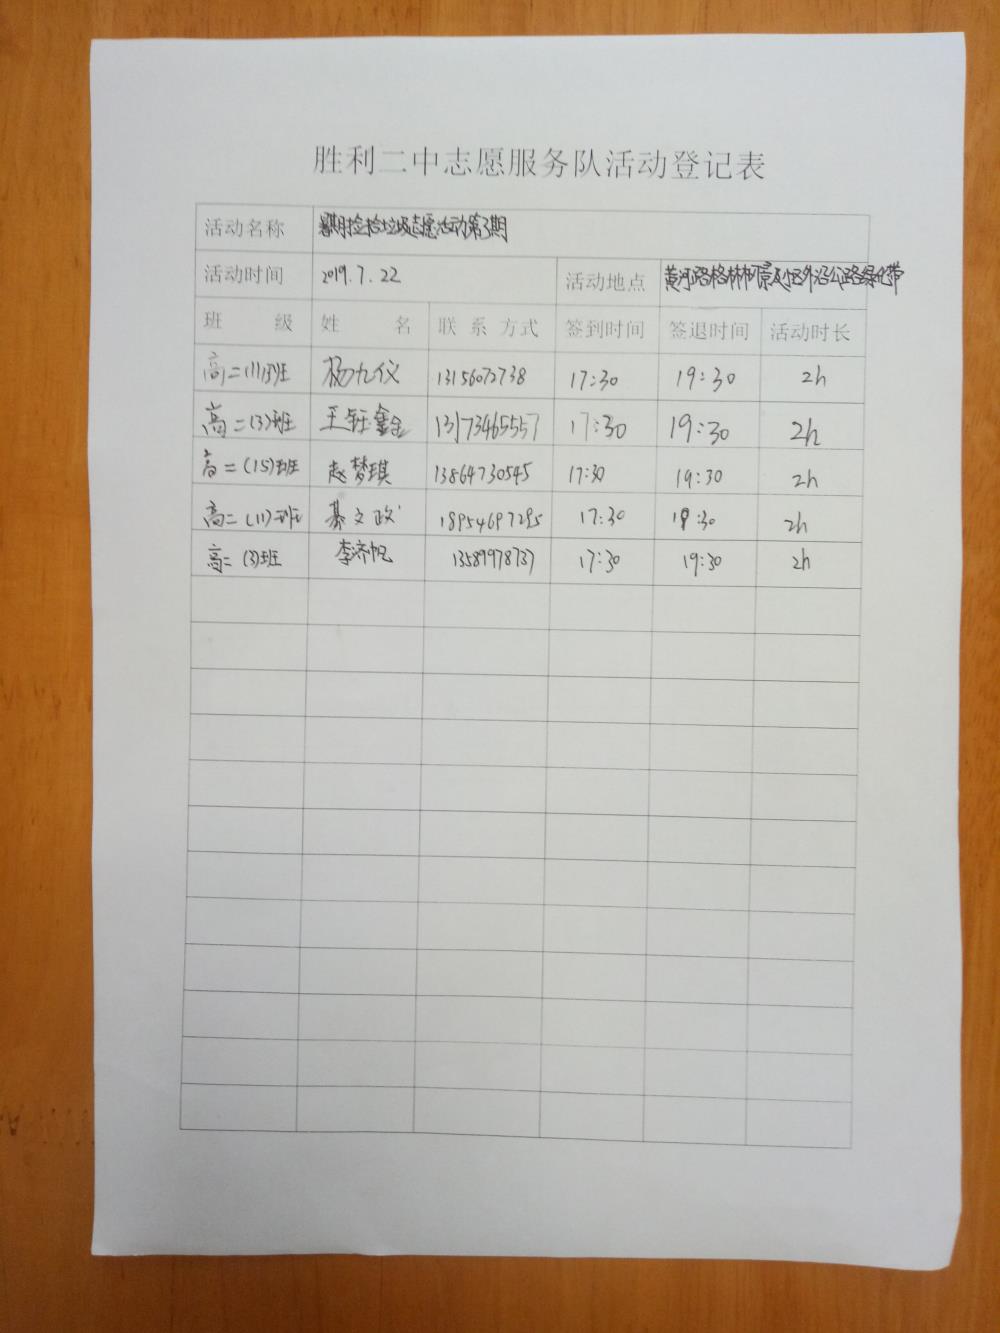 胜利二中志愿服务队活动登记表
活动名称 暑期捡拾垃圾志愿活动第3期
活动时间 2019.7.22 活动地点 黄河路格林小区外沿公路绿化带
班 级 姓 名 联系方式 签到时间 签退时间 活动时长
高二班 杨九仪 13156072738 17:30 19:30 2h
高二(3)班 王钰鑫 13173465557 17:30 19:30 2h
高二(15)班 赵梦琪 13864730545 17:30 19:30 2h
高二(11)班 綦文政 18954697295 17:30 19:30 2h
高二(3)班 李济帆 13589978737 17:30 19:30 2h